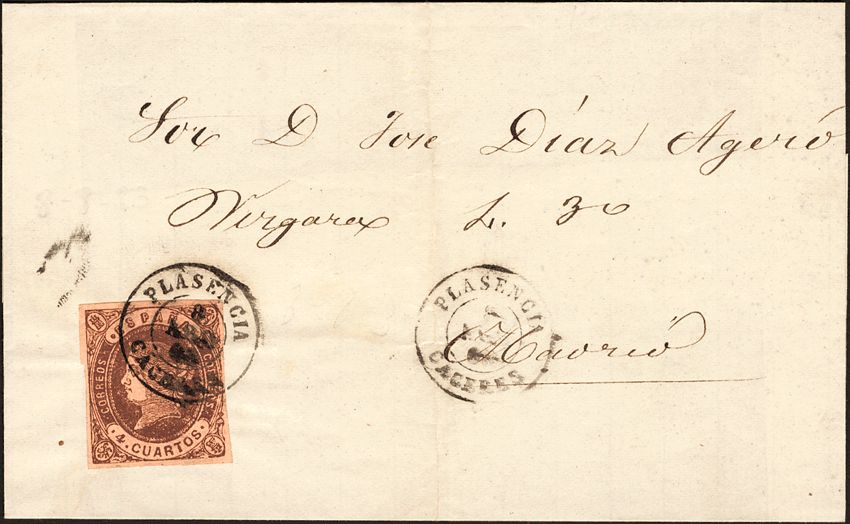 Sor D Jose Díaz Ageró
Vergara L. 30
Madrid
PLASENCIA
8
CACERES
PLASENCIA
CACERES
ESPAÑA
CORREOS
4 CUARTOS